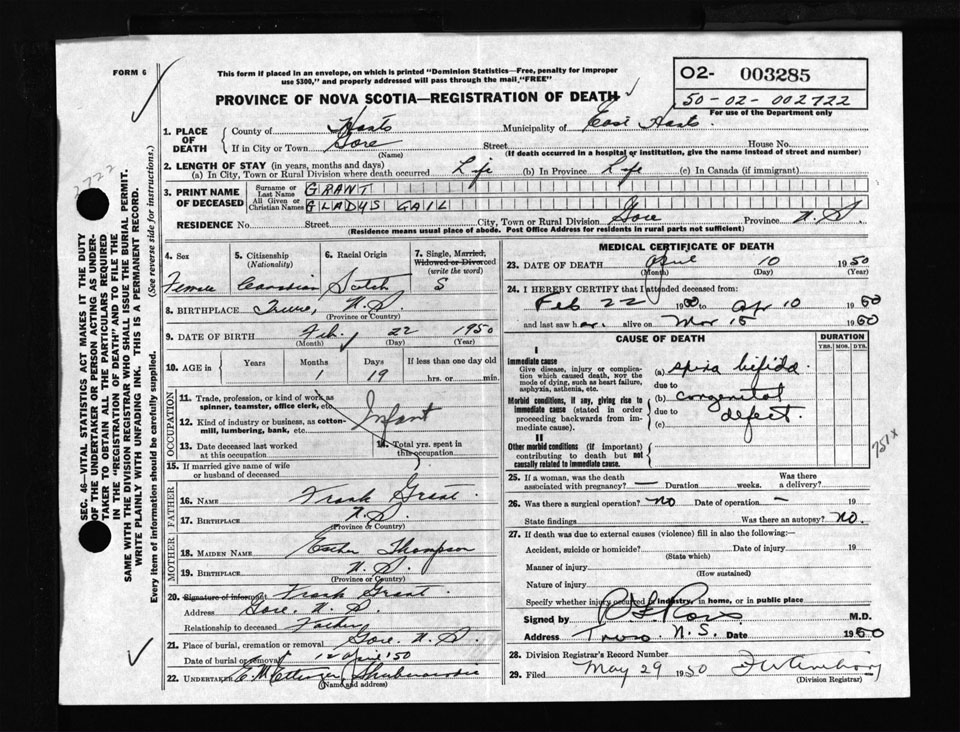 FORM 6
This form if placed in an envelope, on which is printed "Dominion Statistics—Free, penalty for improper
use $300," and properly addressed will pass through the mail, "FREE"
PROVINCE OF NOVA SCOTIA—REGISTRATION OF DEATH
O2- 003285
50-02-002722
For use of the Department only
1. PLACE OF DEATH
County of Hants Municipality of East Hants
If in City or Town Gore Street House No.
(Name) (If death occurred in a hospital or institution, give the name instead of street and number)
2. LENGTH OF STAY (in years, months and days)
(a) In City, Town or Rural Division where death occurred Life (b) In Province Life (c) In Canada (if immigrant)
3. PRINT NAME OF DECEASED
Surname or Last Name GRANT
All Given or Christian Names GLADYS GAIL
RESIDENCE No. Street City, Town or Rural Division Gore Province N.S.
(Residence means usual place of abode. Post Office Address for residents in rural parts not sufficient)
4. Sex Female
5. Citizenship (Nationality) Canadian
6. Racial Origin Scotch
7. Single, Married, Widowed or Divorced (write the word) S
8. BIRTHPLACE Truro, N.S.
(Province or Country)
9. DATE OF BIRTH Feb. 22 1950
(Month) (Day) (Year)
10. AGE in Years Months Days If less than one day old
1 19 hrs. or min.
OCCUPATION
11. Trade, profession, or kind of work as
spinner, teamster, office clerk, etc.
Infant
12. Kind of industry or business, as cotton-
mill, lumbering, bank, etc.
13. Date deceased last worked
at this occupation
14. Total yrs. spent in
this occupation
15. If married give name of wife
or husband of deceased
FATHER
16. NAME Frank Grant
17. BIRTHPLACE N.S.
(Province or Country)
MOTHER
18. MAIDEN NAME Esther Thompson
19. BIRTHPLACE N.S.
(Province or Country)
20. Signature of informant Frank Grant
Address Gore, N.S.
Relationship to deceased Father
21. Place of burial, cremation or removal Gore, N.S.
Date of burial or removal 12 april '50
22. UNDERTAKER E. M. Ettinger, Shubenacadie
(Name and address)
MEDICAL CERTIFICATE OF DEATH
23. DATE OF DEATH April 10 1950
(Month) (Day) (Year)
24. I HEREBY CERTIFY that I attended deceased from:
Feb 22 1950 to Ap 10 1950
and last saw her alive on Mar 15 1950
CAUSE OF DEATH
DURATION
YRS. MOS. DYS.
I
Immediate cause
Give disease, injury or complica-
tion which caused death, not the
mode of dying, such as heart failure,
asphyxia, asthenia, etc.
(a) spina bifida.
due to
Morbid conditions, if any, giving rise to
immediate cause (stated in order
proceeding backwards from im-
mediate cause).
(b) congenital
due to defect.
(c)
II
Other morbid conditions (if important)
contributing to death but not
causally related to immediate cause.
751x
25. If a woman, was the death
associated with pregnancy? — Duration weeks. Was there
a delivery?
26. Was there a surgical operation? No Date of operation — 19
State findings Was there an autopsy? No.
27. If death was due to external causes (violence) fill in also the following:—
Accident, suicide or homicide? Date of injury 19
(State which)
Manner of injury
(How sustained)
Nature of injury
Specify whether injury occurred in industry, in home, or in public place
Signed by Ross M.D.
Address Truro N.S. Date 1950
28. Division Registrar's Record Number
29. Filed May 29 1950
(Division Registrar)
SEC. 46—VITAL STATISTICS ACT MAKES IT THE DUTY
OF THE UNDERTAKER OR PERSON ACTING AS UNDER-
TAKER TO OBTAIN ALL THE PARTICULARS REQUIRED
IN THE "REGISTRATION OF DEATH" AND TO FILE THE
SAME WITH THE DIVISION REGISTRAR WHO SHALL ISSUE THE BURIAL PERMIT.
WRITE PLAINLY WITH UNFADING INK. THIS IS A PERMANENT RECORD.
Every item of information should be carefully supplied. (See reverse side for instructions.)